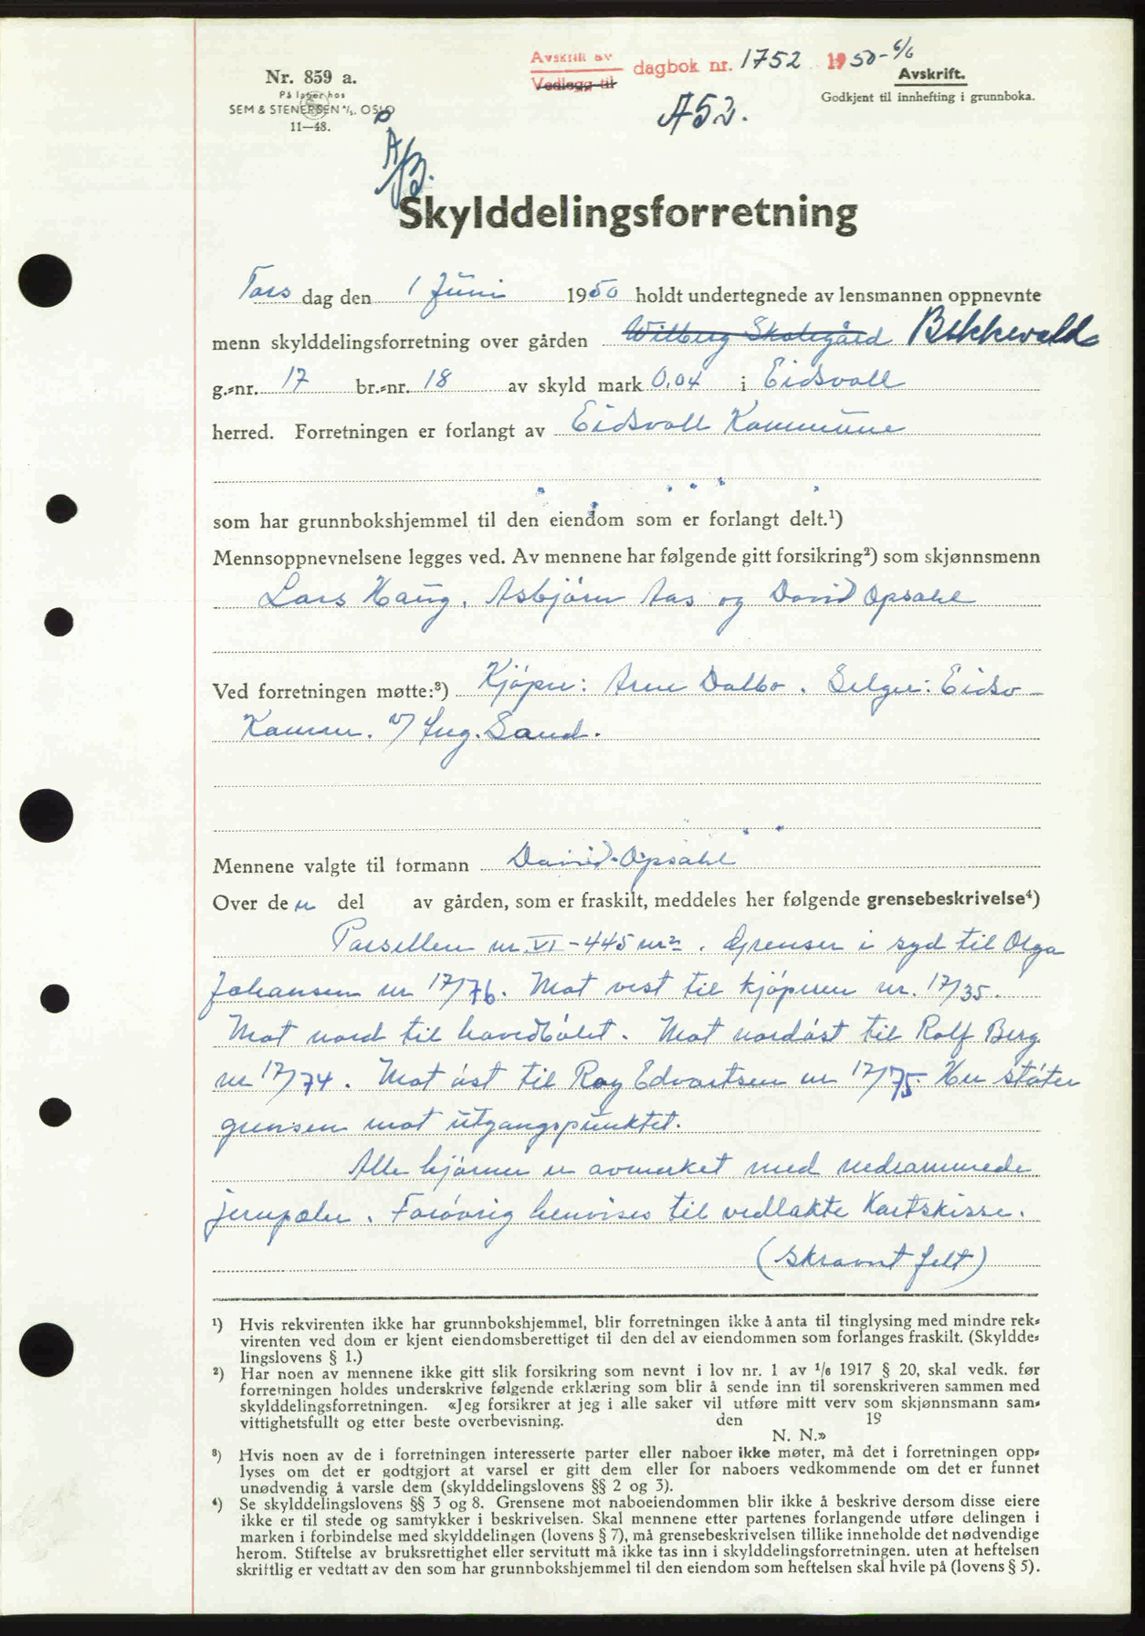 Nr. 859 a.
På lager hos
SEM & STENERSEN A/S. OSLO
11—48.
Avskrift av
Vedlegg til
dagbok nr. 1752 1950 - 6/6
Avskrift.
Godkjent til innhefting i grunnboka.
A52.
A/B.
Skylddelingsforretning
Tors dag den 1 Juni 1950 holdt undertegnede av lensmannen oppnevnte
menn skylddelingsforretning over gården Wilberg Skolegård Bekkevold
g.=nr. 17 br.=nr. 18 av skyld mark 0,04 i Eidsvoll
herred. Forretningen er forlangt av Eidsvoll Kommune
som har grunnbokshjemmel til den eiendom som er forlangt delt.¹)
Mennsoppnevnelsene legges ved. Av mennene har følgende gitt forsikring²) som skjønnsmenn
Lars Haug, Asbjörn Aas og David Opsahl
Ved forretningen møtte:³) Kjöper: Arne Dalbo. Selger: Eidsv
Komm. v/ Ing. Sand.
Mennene valgte til formann David Opsahl
Over den del av gården, som er fraskilt, meddeles her følgende grensebeskrivelse⁴)
Parsellen nr. VI - 445 m². Grenser i syd til Olga
Johansen nr 17/76. Mot vest til kjöperen nr. 17/35.
Mot nord til hovedbölet. Mot nordöst til Rolf Berg
nr 17/74. Mot öst til Roy Edvartsen nr 17/75. Her stöter
grensen mot utgangspunktet.
Alle hjörner er avmerket med nedrammede
jernpæler. Forövrig henvises til vedlakte Kartskisse.
(Skravert felt)
¹) Hvis rekvirenten ikke har grunnbokshjemmel, blir forretningen ikke å anta til tinglysing med mindre rek=
virenten ved dom er kjent eiendomsberettiget til den del av eiendommen som forlanges fraskilt. (Skyldde=
lingslovens § 1.)
²) Har noen av mennene ikke gitt slik forsikring som nevnt i lov nr. 1 av ¹/₆ 1917 § 20, skal vedk. før
forretningen holdes underskrive følgende erklæring som blir å sende inn til sorenskriveren sammen med
skylddelingsforretningen. «Jeg forsikrer at jeg i alle saker vil utføre mitt verv som skjønnsmann sam=
vittighetsfullt og etter beste overbevisning. den 19
N. N.»
³) Hvis noen av de i forretningen interesserte parter eller naboer ikke møter, må det i forretningen opp=
lyses om det er godtgjort at varsel er gitt dem eller for naboers vedkommende om det er funnet
unødvendig å varsle dem (skylddelingslovens §§ 2 og 3).
⁴) Se skylddelingslovens §§ 3 og 8. Grensene mot naboeiendommen blir ikke å beskrive dersom disse eiere
ikke er til stede og samtykker i beskrivelsen. Skal mennene etter partenes forlangende utføre delingen i
marken i forbindelse med skylddelingen (lovens § 7), må grensebeskrivelsen tillike inneholde det nødvendige
herom. Stiftelse av bruksrettighet eller servitutt må ikke tas inn i skylddelingsforretningen. uten at heftelsen
skriftlig er vedtatt av den som har grunnbokshjemmel til den eiendom som heftelsen skal hvile på (lovens § 5).